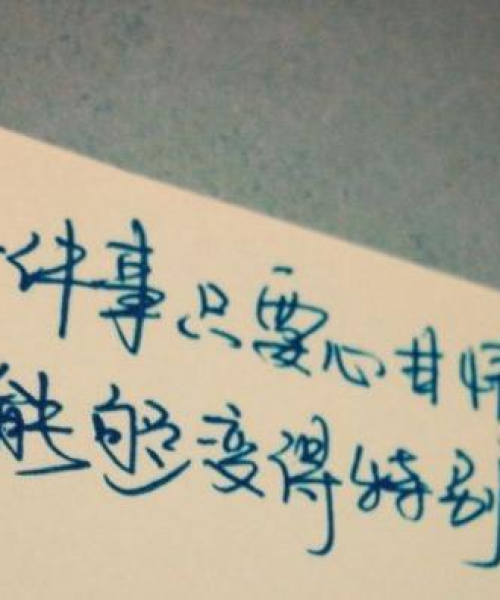 件事只要心甘情
能够变得特别